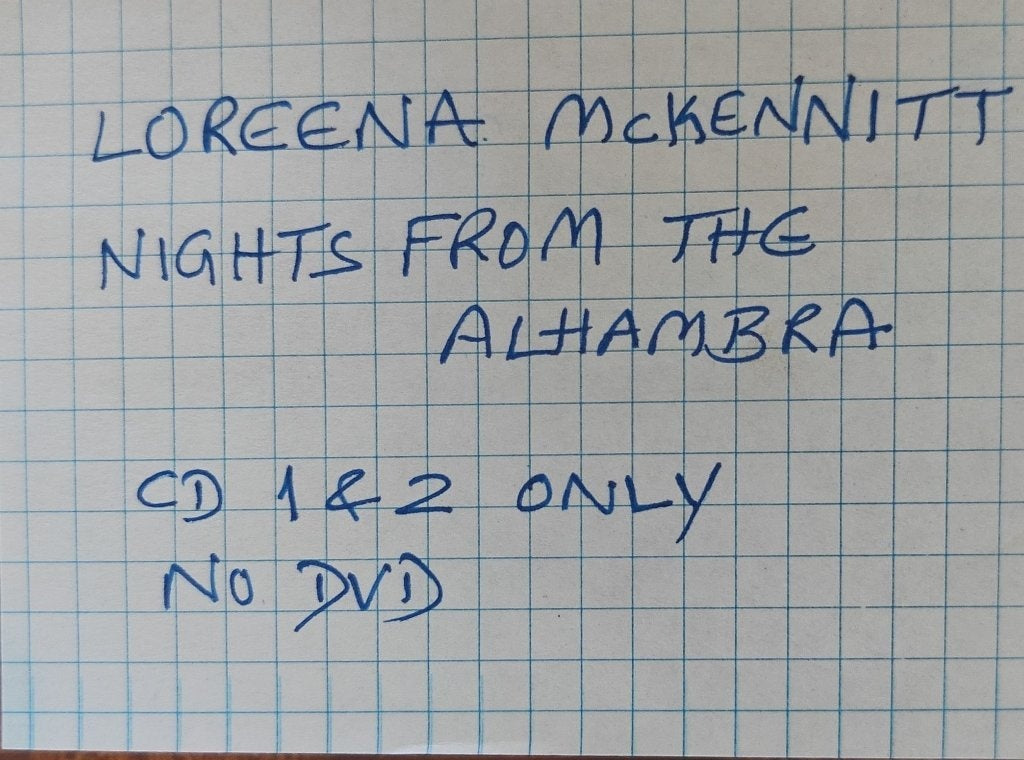 LOREENA McKENNITT
NIGHTS FROM THE
ALHAMBRA
CD 1 & 2 ONLY
NO DVD